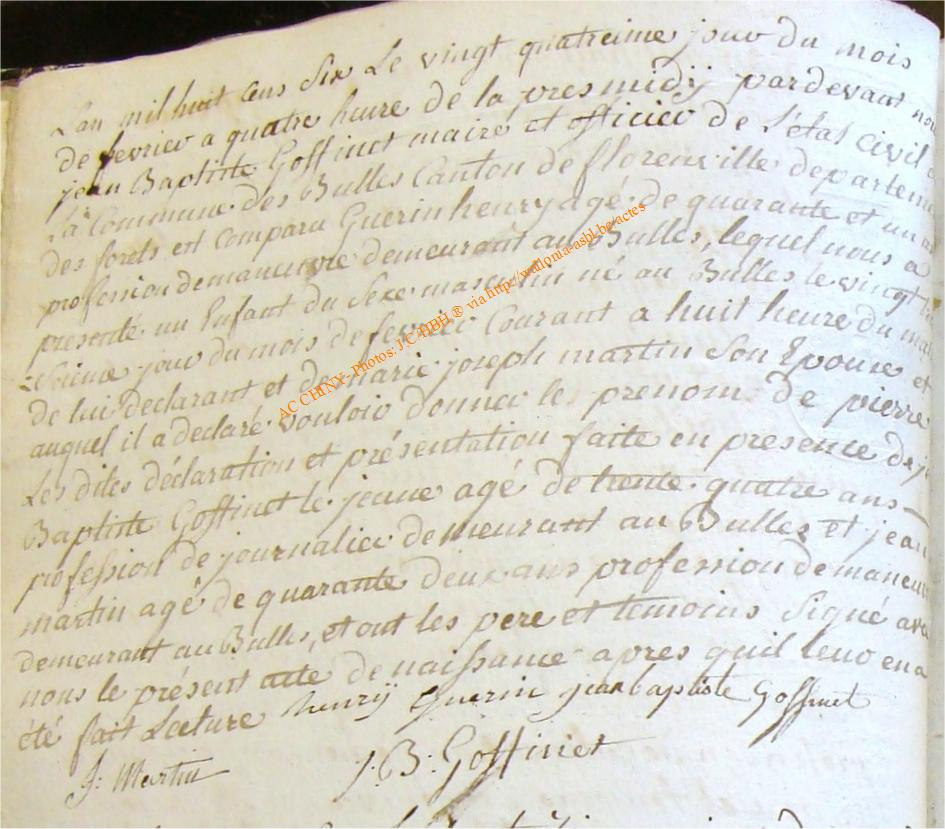 L'an mil huit cens Six Le vingt quatreime jour du mois
de fevrier a quatre heure de la presmidÿ pardevant nous
jean Baptiste Goffinet maire et officier de L'état Civil
La Commune des Bulles Canton de florenville departeme
des forets est Comparu Guerin henry agé de quarante et un
profession de maneuvre demeurant au Bulles, lequel nous a
presenté un Enfant du Sexe masculin né au Bulles le vingt
jour du mois de fevrier Courant a huit heure du ma
de lui declarant et de marie joseph martin Son Epouse et
auquel il a declaré vouloir donner les prenom de pierre
Les dites déclaration et présentation faite en presence de
Baptiste Goffinet le jeune agé de trente quatre ans
profession de journalier demeurant au Bulles et jean
martin agé de quarante deux ans profession de maneuv
demeurant au Bulles, et ont les pere et temoins Signé avec
nous le présent acte de naissance apres quil leur en a
été fait Lecture henrÿ Guerin jean baptiste Goffinet
J: Martin J:B: Goffinet
AC CHINY- Photos: J.C HBH ® via http://wallonia-asbl.be/actes